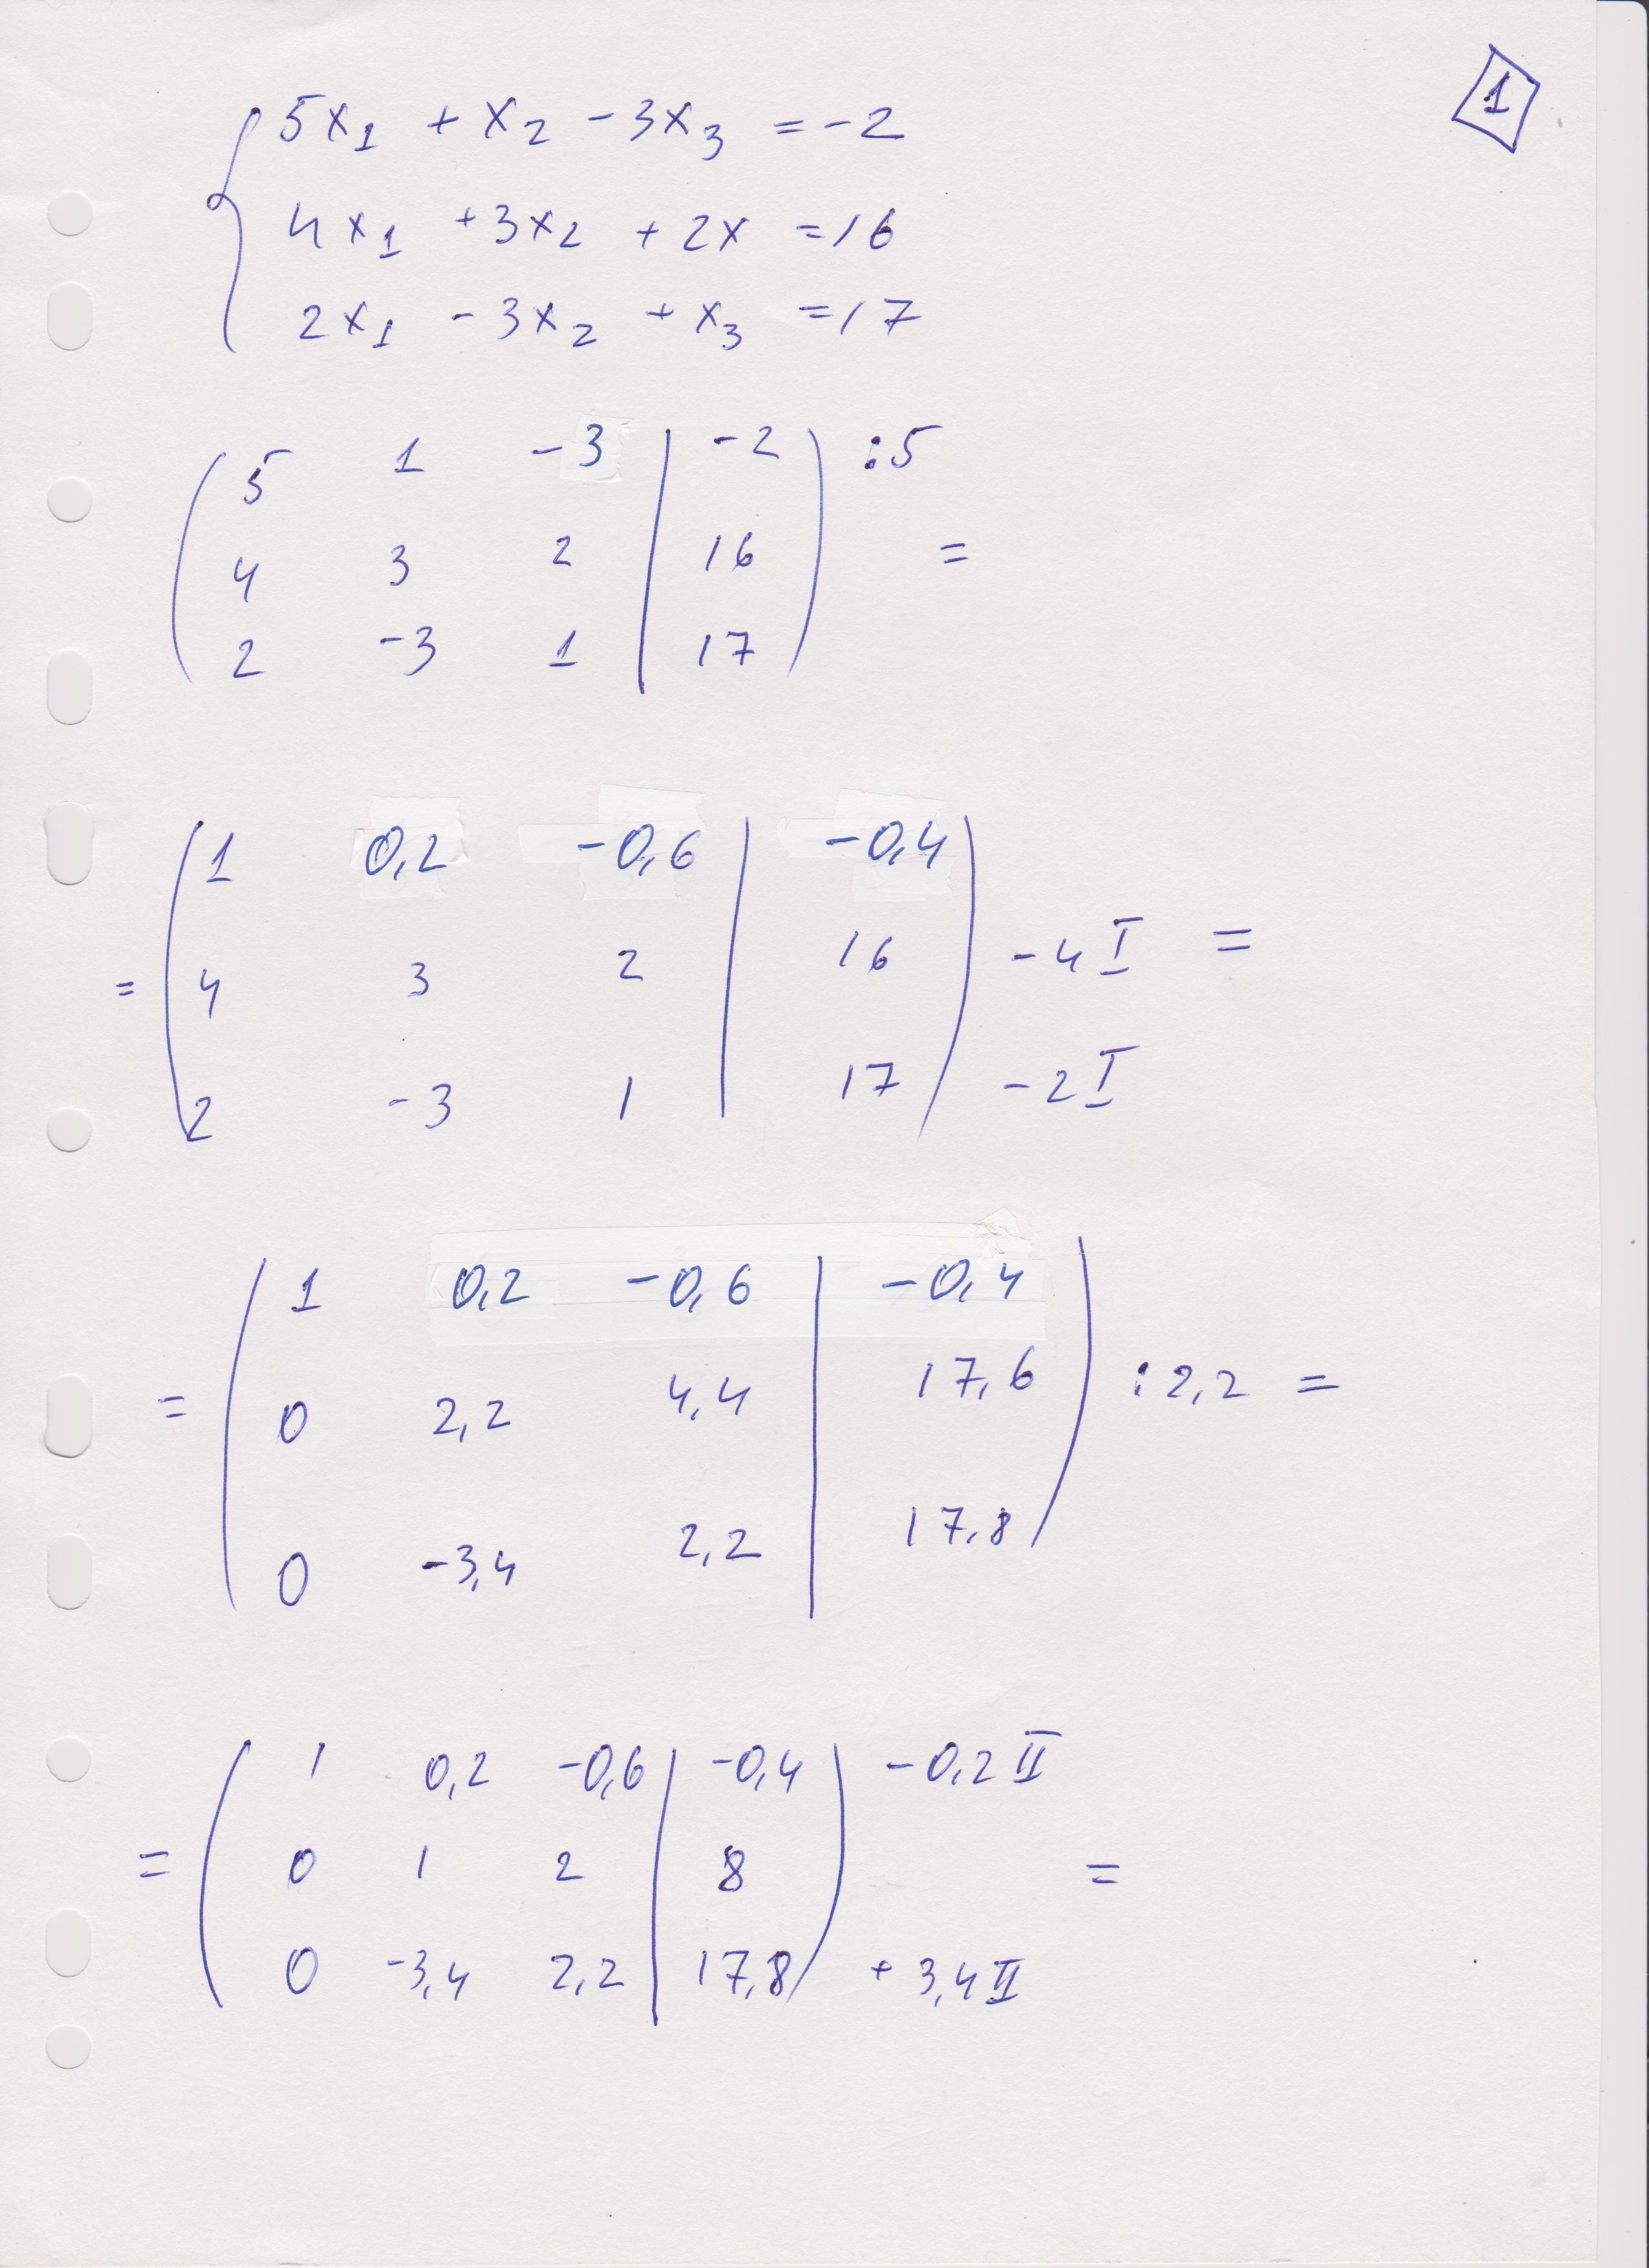 1
5x₁ + x₂ - 3x₃ = -2
4x₁ + 3x₂ + 2x = 16
2x₁ - 3x₂ + x₃ = 17
5 1 -3 | -2 :5
4 3 2 | 16 =
2 -3 1 | 17
1 0,2 -0,6 | -0,4
= 4 3 2 | 16 -4I =
2 -3 1 | 17 -2I
1 0,2 -0,6 | -0,4
= 0 2,2 4,4 | 17,6 :2,2 =
0 -3,4 2,2 | 17,8
1 0,2 -0,6 | -0,4 -0,2II
= 0 1 2 | 8 =
0 -3,4 2,2 | 17,8 + 3,4II